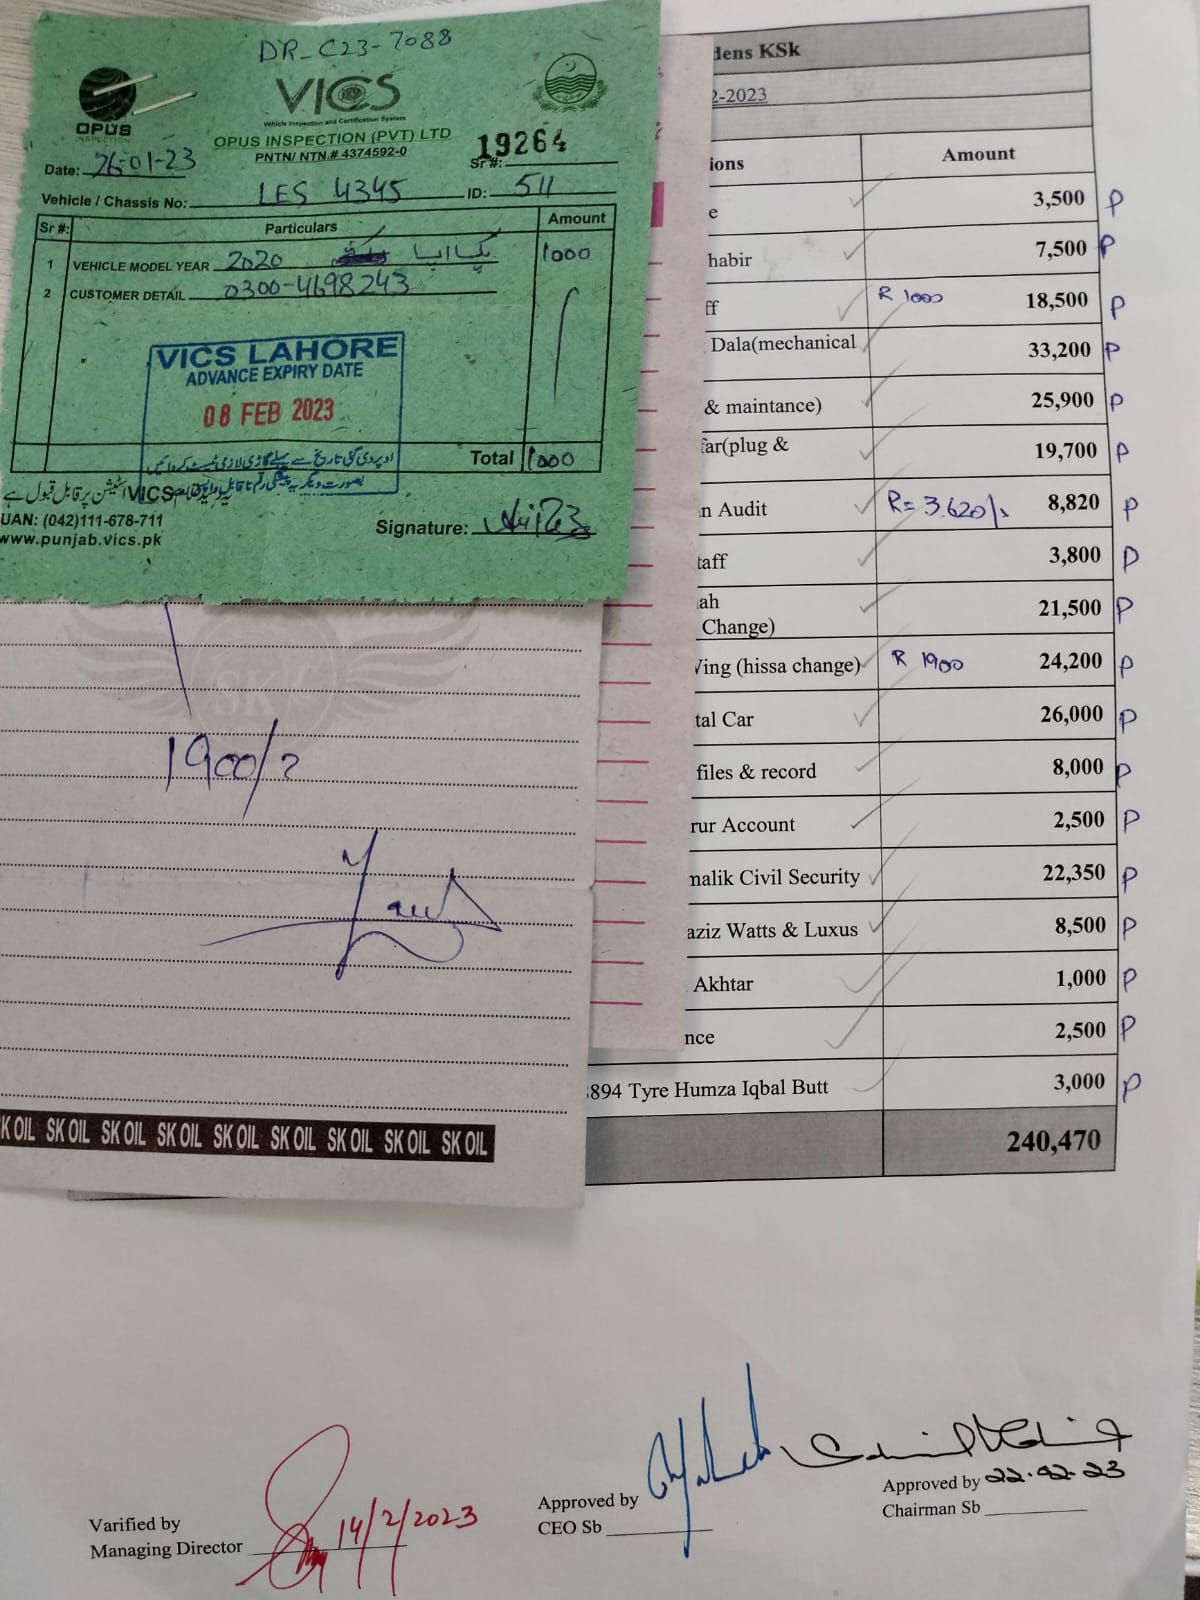 DR-C23-7088
OPUS
INSPECTION
VICS
Vehicle Inspection and Certification System
OPUS INSPECTION (PVT) LTD
PNTN/ NTN.# 4374592-0
19264
Sr#:
Date: 26-01-23
Vehicle / Chassis No: LES 4345 ID: 511
Sr#: Particulars Amount
1 VEHICLE MODEL YEAR 2020 پک اپ 1000
2 CUSTOMER DETAIL 0300-4698243
VICS LAHORE
ADVANCE EXPIRY DATE
08 FEB 2023
اوپر دی گئی تاریخ سے پہلے گاڑی لازمی ٹیسٹ کروائیں
Total 1000
VICS اسٹیشن پر قابل قبول ہے
UAN: (042)111-678-711
www.punjab.vics.pk
Signature:
1900/
SK OIL SK OIL SK OIL SK OIL SK OIL SK OIL SK OIL SK OIL SK OIL
dens KSk
2-2023
ions Amount
e 3,500 P
habir 7,500 P
ff R 1000 18,500 P
Dala(mechanical 33,200 P
& maintance) 25,900 P
far(plug & 19,700 P
n Audit R= 3.620/. 8,820 P
taff 3,800 P
ah
Change) 21,500 P
Ving (hissa change) R 1900 24,200 P
tal Car 26,000 P
files & record 8,000 P
rur Account 2,500 P
malik Civil Security 22,350 P
aziz Watts & Luxus 8,500 P
Akhtar 1,000 P
nce 2,500 P
894 Tyre Humza Iqbal Butt 3,000 P
240,470
Varified by
Managing Director 14/2/2023
Approved by
CEO Sb
Approved by 22-02-23
Chairman Sb